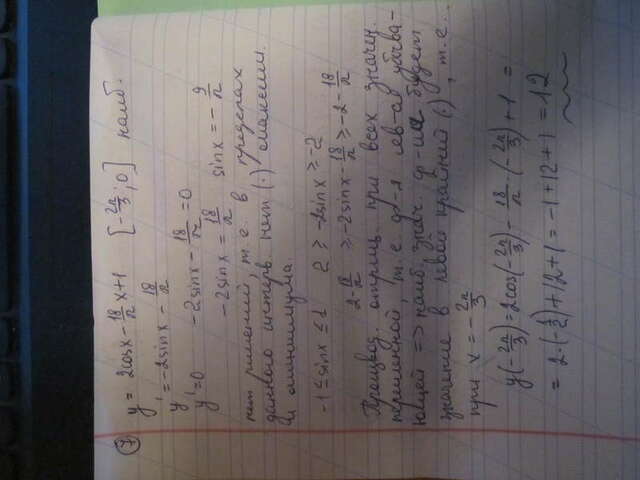 ⑦ y = 2cosx - 18/π x + 1 [-2π/3; 0] наиб.
y' = -2sinx - 18/π
y' = 0 -2sinx - 18/π = 0
-2sinx = 18/π sinx = -9/π
нет решений, т.е. в пределах
данного интерв. нет (·) максим.
и минимума.
-1 ≤ sinx ≤ 1 2 ≥ -2sinx ≥ -2
2 - 18/π ≥ -2sinx - 18/π ≥ -2 - 18/π
Производ. отриц. при всех значен.
переменной, т.е. ф-я явл-ся убыва-
ющей => наиб. знач. ф-ии будет
значение в левой крайней (·), т.е...
при x = -2π/3
y(-2π/3) = 2cos(-2π/3) - 18/π · (-2π/3) + 1 =
= 2·(-1/2) + 12 + 1 = -1 + 12 + 1 = 12